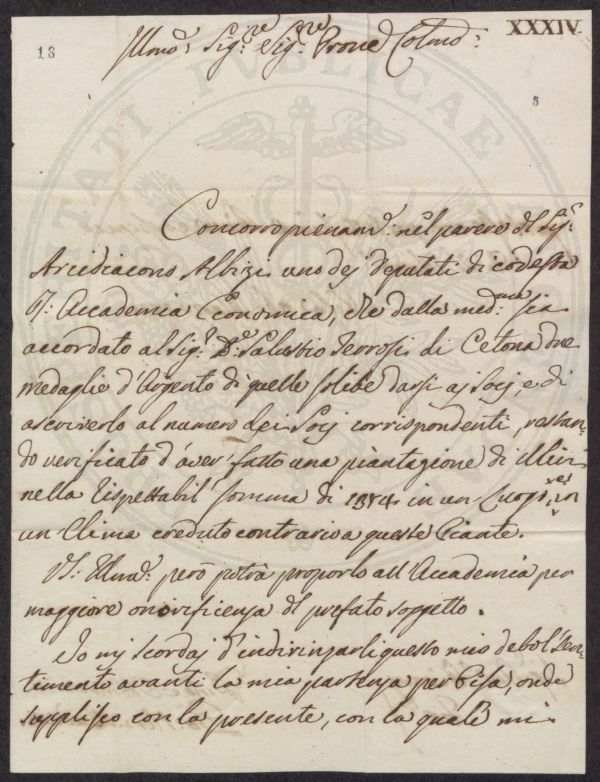 XXXIV
18
Illmo: Sig:re Sig:re Prone Colmo:
5
Concorro pienam:e nel parere del Sig:
Arcidiacono Albizi uno dej Deputati di codesta
Accademia Economica, che dalla med:ma sia
accordato al Sig:e D:e Salustio Terrosi di Cetona due
medaglie d'Argento di quelle solite darsi aj Socj, e di
ascriverlo al numero dei Socj corrispondenti, restan-
do verificato d'aver fatto una piantagione di Ulivi
nella rispettabil somma di 1814 in un Luogo, et in
un Clima creduto contrario a queste Piante.
VS: Illma: però potrà proporlo all'Accademia per
maggiore onorificenza del prefato soggetto.
Io mi scordaj d'indirizzarli questo mio debol sen-
timento avanti la mia partenza per Pisa, onde
supplisco con la presente, con la quale mi
PUBLICAE